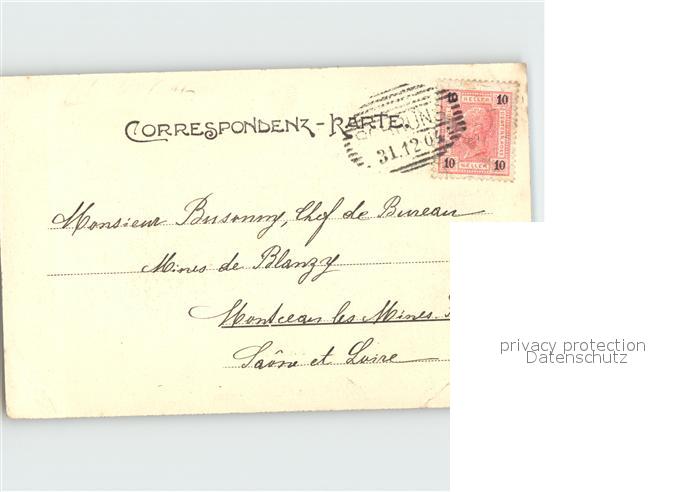 CORRESPONDENZ-KARTE
10
HELLER
31.12.04
10 HELLER 10
Monsieur Busonny, Chef de Bureau
Mines de Blanzy
Montceau les Mines.
Saône et Loire
privacy protection
Datenschutz